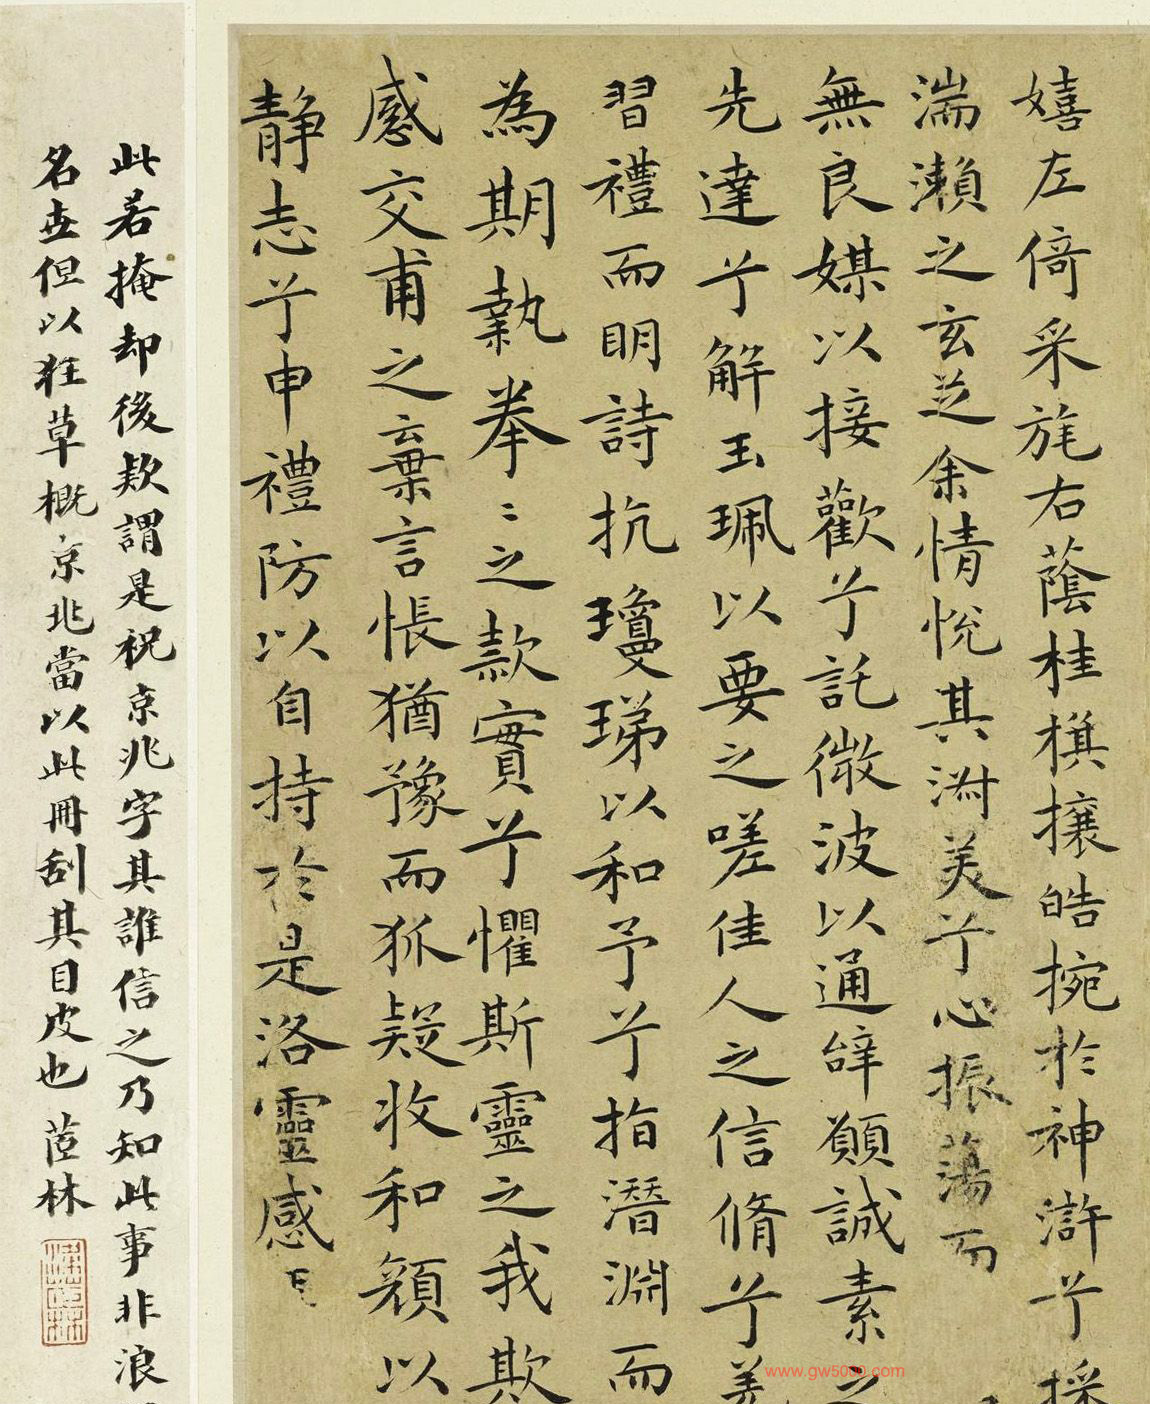 嬉左倚采旄右蔭桂樹攘皓捥於神滸兮採
湍瀨之玄芝余情悅其淑美兮心振蕩而
無良媒以接歡兮託微波以通辝願誠素之
先達兮解玉珮以要之嗟佳人之信脩兮羌
習禮而明詩抗瓊珶以和予兮指潛淵而
為期執拳〻之款實兮懼斯靈之我欺
感交甫之棄言悵猶豫而狐疑收和顏以
靜志兮申禮防以自持於是洛靈感
此若掩却後款謂是祝京兆字其誰信之乃知此事非浪
名世但以狂草概京兆當以此冊刮其目皮也 茝林
www.gw5000.com